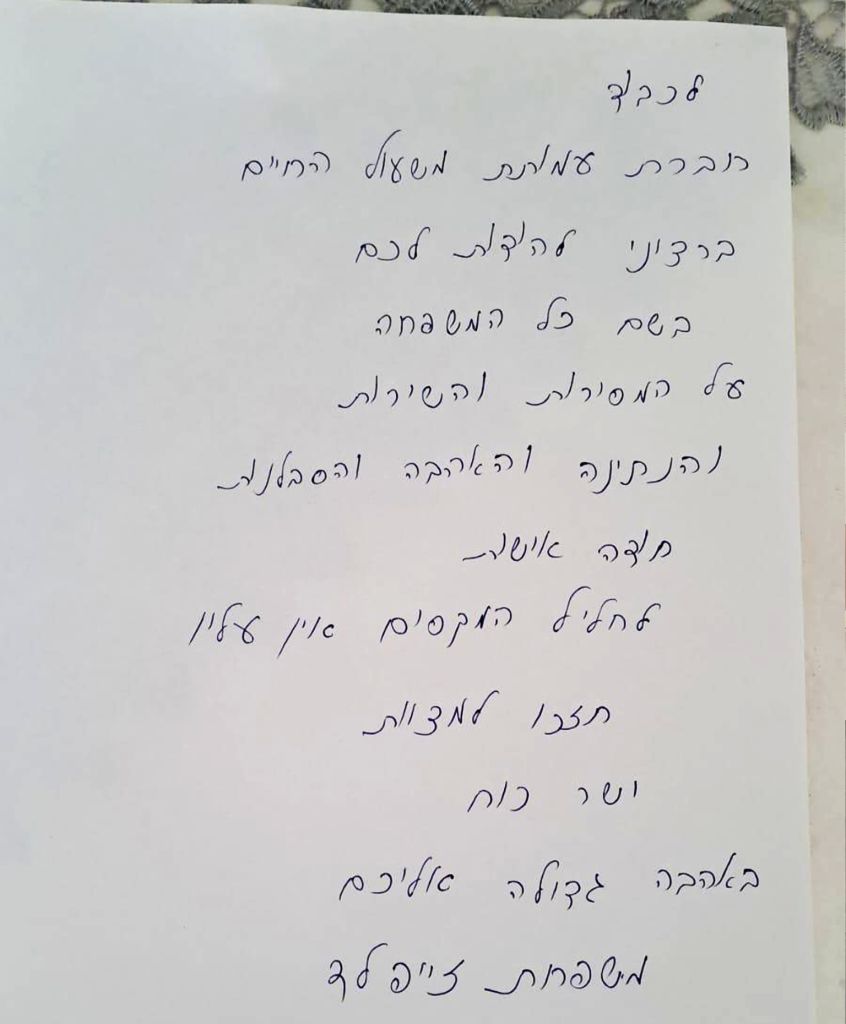 לכבוד
חוברת עמותת משעול החיים
ברצוני להודות לכם
בשם כל המשפחה
על המסירות והשירות
והנתינה והאהבה והסבלנות
תודה אישית
לחליל המקסים אין עליו
תזכו למצוות
ישר כוח
באהבה גדולה אליכם
משפחת זייפלד